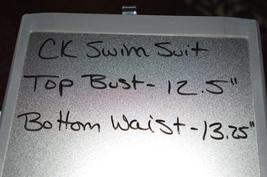 CK Swim Suit
Top Bust - 12.5"
Bottom Waist - 13.25"